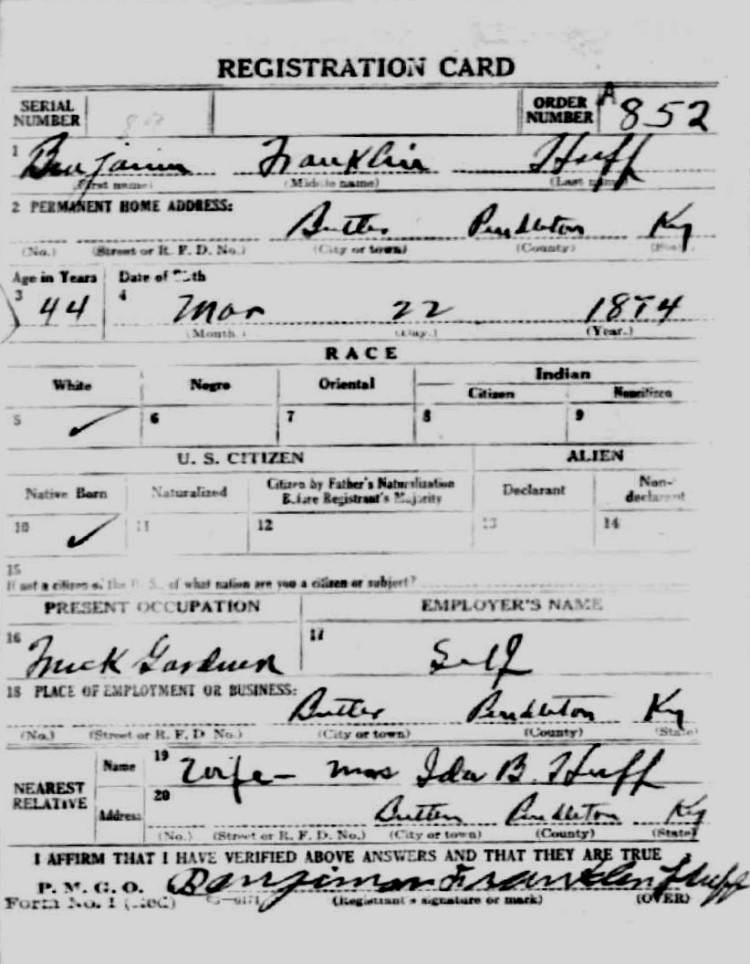 REGISTRATION CARD
SERIAL NUMBER ORDER NUMBER A 852
1 Benjamin Franklin Huff
(First name) (Middle name) (Last name)
2 PERMANENT HOME ADDRESS:
Butler Pendleton Ky
(No.) (Street or R. F. D. No.) (City or town) (County) (State)
Age in Years Date of Birth
3 44 4 Mar 22 1874
(Month.) (Day.) (Year.)
RACE
White Negro Oriental Indian
Citizen Noncitizen
5 ✓ 6 7 8 9
U. S. CITIZEN ALIEN
Native Born Naturalized Citizen by Father's Naturalization Before Registrant's Majority Declarant Non-declarant
10 ✓ 11 12 13 14
15
If not a citizen of the U. S., of what nation are you a citizen or subject?
PRESENT OCCUPATION EMPLOYER'S NAME
16 Truck Gardner 17 Self
18 PLACE OF EMPLOYMENT OR BUSINESS:
Butler Pendleton Ky
(No.) (Street or R. F. D. No.) (City or town) (County) (State)
NEAREST RELATIVE Name 19 Wife - Mrs Ida B. Huff
Address 20 Butler Pendleton Ky
(No.) (Street or R. F. D. No.) (City or town) (County) (State)
I AFFIRM THAT I HAVE VERIFIED ABOVE ANSWERS AND THAT THEY ARE TRUE
P. M. G. O. Benjiman Franklin Huff
Form No. 1 (Red) (Registrant's signature or mark) (OVER)